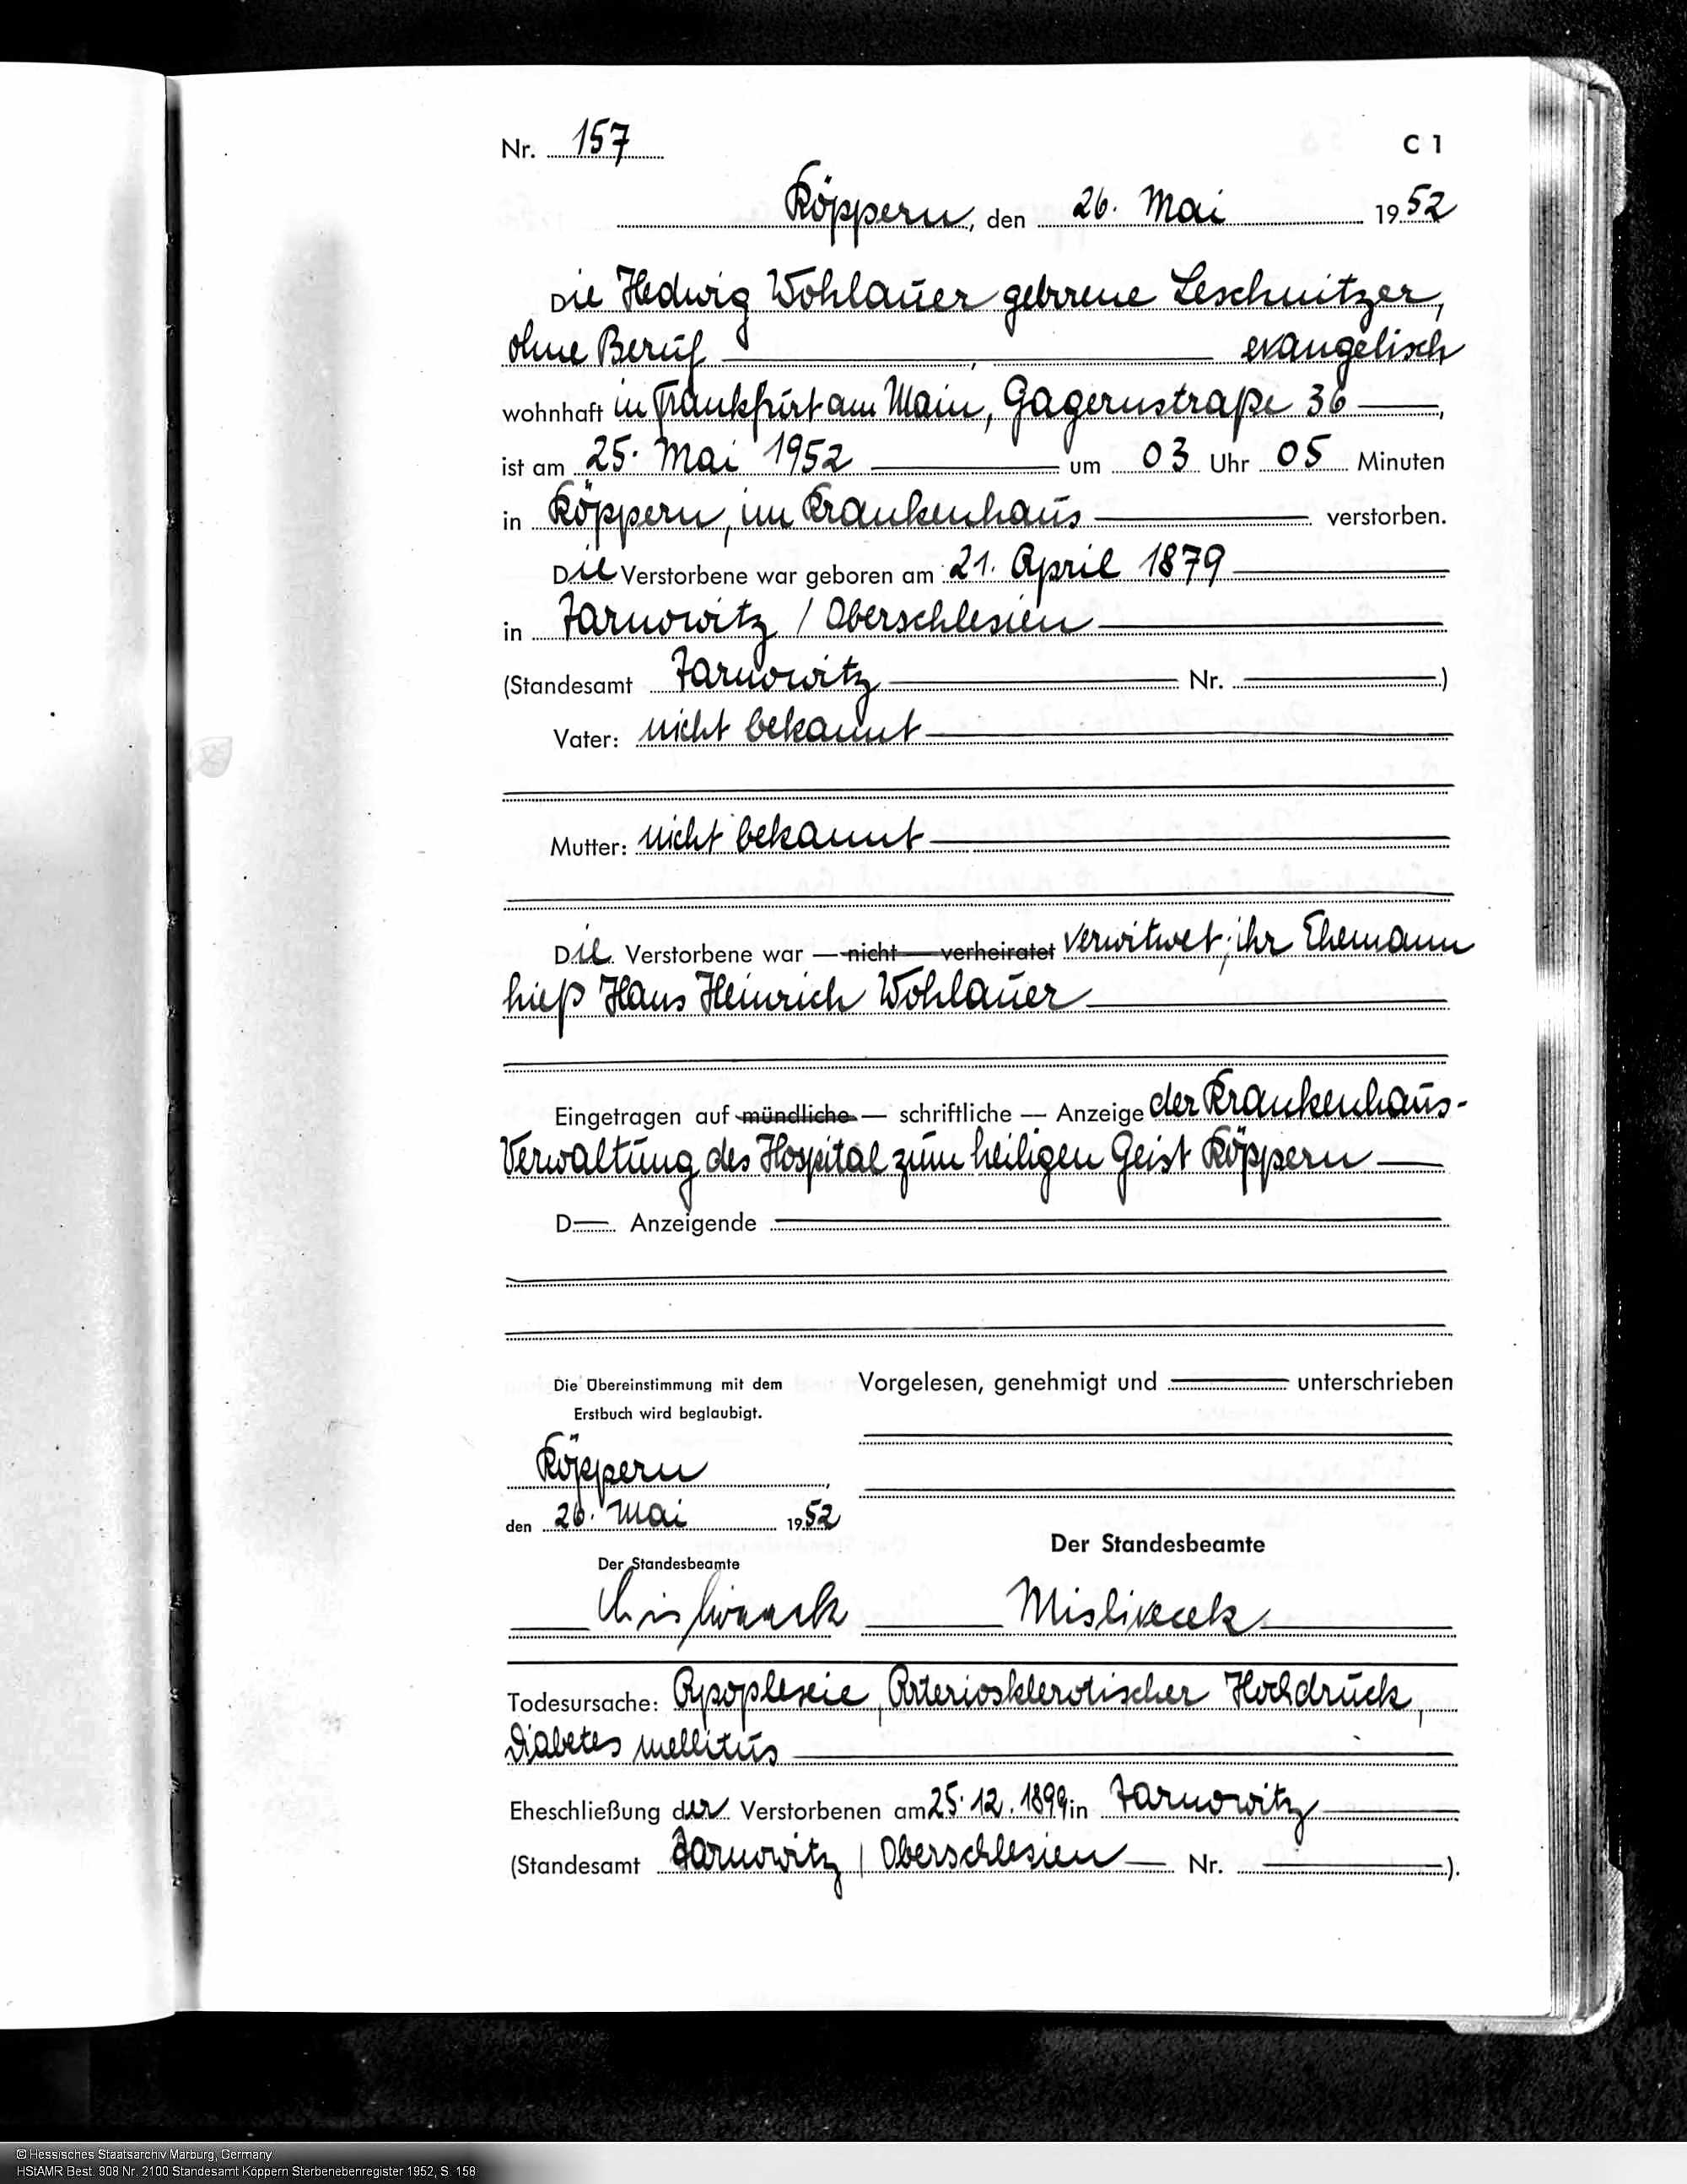 Nr. 157
C 1
Köppern, den 26. Mai 1952
Die Hedwig Wohlauer geborene Leschnitzer,
ohne Beruf, evangelisch
wohnhaft in Frankfurt am Main, Gagernstraße 36,
ist am 25. Mai 1952 um 03 Uhr 05 Minuten
in Köppern, im Krankenhaus verstorben.
Die Verstorbene war geboren am 21. April 1879
in Tarnowitz / Oberschlesien
(Standesamt Tarnowitz Nr. )
Vater: nicht bekannt
Mutter: nicht bekannt
Die Verstorbene war — nicht — verheiratet verwitwet; ihr Ehemann
hieß Hans Heinrich Wohlauer
Eingetragen auf mündliche — schriftliche — Anzeige der Krankenhaus-
Verwaltung des Hospital zum heiligen Geist Köppern
D Anzeigende
Die Übereinstimmung mit dem
Erstbuch wird beglaubigt.
Vorgelesen, genehmigt und unterschrieben
Köppern,
den 26. Mai 1952
Der Standesbeamte
Der Standesbeamte
Misliwecek
Todesursache: Apoplexie, Arteriosklerotischer Hochdruck,
Diabetes mellitus
Eheschließung der Verstorbenen am 25.12.1899 in Tarnowitz
(Standesamt Tarnowitz / Oberschlesien Nr. ).
© Hessisches Staatsarchiv Marburg, Germany
HStAMR Best. 908 Nr. 2100 Standesamt Köppern Sterbenebenregister 1952, S. 158